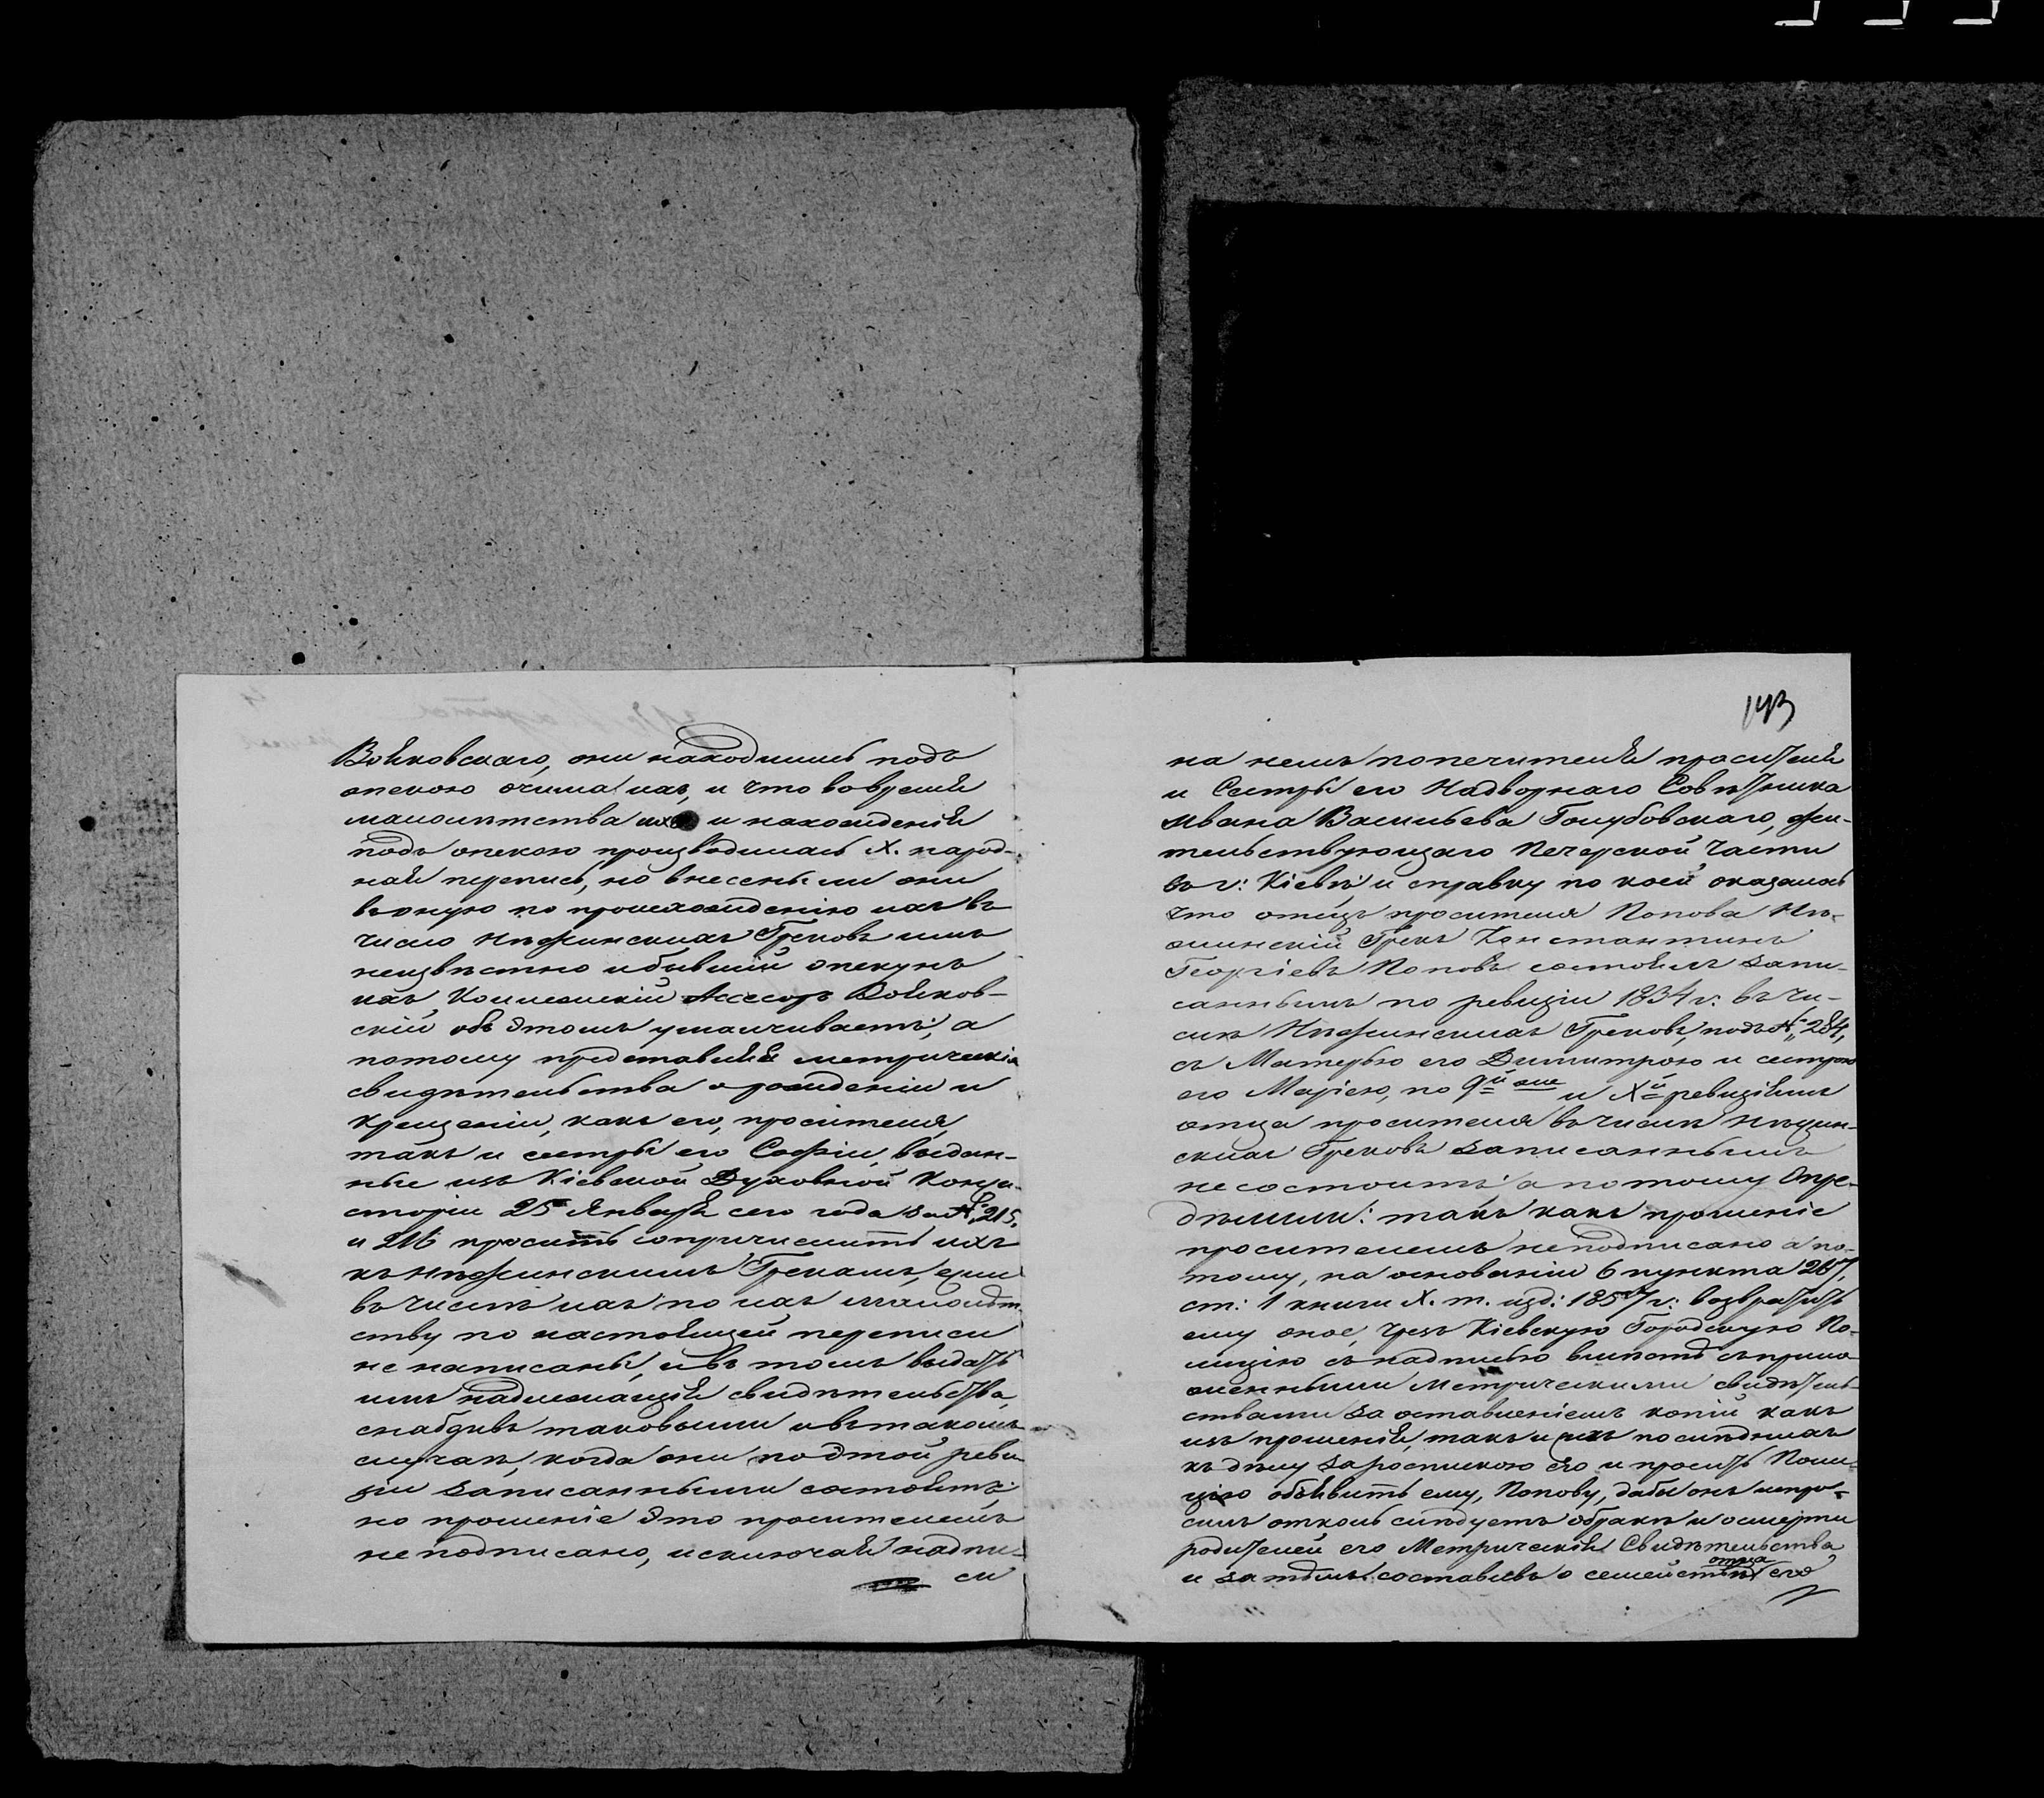 Войковскаго, они находились подъ
опекою отчима ихъ, и что вовремя
малолѣтства ихъ и нахожденія
подъ опекою производилась X. народ-
ная перепись, но внесены ли они
въ оную по происхожденію ихъ въ
число Нѣжинскихъ Грековъ имъ
неизвѣстно и бывшій опекунъ
ихъ, Коллежскій Ассесоръ Войков-
скій объ этомъ умалчиваетъ; а
потому представляя метрическія
свидѣтельства о рожденіи и
крещеніи, какъ его, просителя,
такъ и сестры его Софіи, выдан-
ные изъ Кіевской Духовной Конси-
сторіи 25 Января сего года за №, 215,
и 216 проситъ сопричислить ихъ
къ Нѣжинскимъ Грекамъ, если
въ числѣ ихъ по ихъ малолѣт-
ству по настоящей переписи
не написаны, и въ томъ выдать
имъ надлежащія свидѣтельства,
снабдивъ таковыми и въ такомъ
случаѣ, когда они по этой реви
зіи записанными состоятъ;
но прошеніе это просителемъ
неподписано, исключая надпи-
си
193
на немъ попечителя просителя
и Сестры его Надворнаго Совѣтника
Ивана Васильева Голубовскаго, жи-
тельствующаго Печерской Части
въ г: Кіевѣ; и справку по коей оказалось
что отецъ просителя Попова Нѣ-
жинскій Грекъ Константинъ
Георгіевъ Поповъ состоялъ запи-
саннымъ по ревизіи 1834 г: въ чи-
слѣ Нѣжинскихъ Грековъ, подъ №, 284,
съ Матерью его Димитрою и сестрою
его Маріею, по 9й же и Xй ревизіямъ
отца просителя въ числѣ Нѣжин-
скихъ Грековъ записаннымъ
не состоитъ; а потому Опре-
дѣлили: такъ какъ прошеніе
просителемъ неподписано а по-
тому, на основаніи 6 пункта 267,
ст: 1 книги X. т. изд: 1857 г: возвратить
ему оное, чрезъ Кіевскую Городскую По-
лицію съ надписью вмѣстѣ съ прило
женными Метрическими свидѣтель-
ствами за оставленіемъ копій какъ
изъ прошенія, такъ и изъ послѣднихъ
къ дѣлу за роспискою его и просить Поли-
цію объявить ему, Попову, дабы онъ испро-
силъ отколь слѣдуетъ о бракѣ и о смерти
родителей его Метрическія Свидѣтельства
и за тѣмъ составивъ о семействѣ отца его